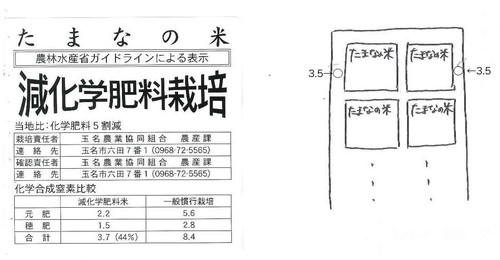 たまなの米
農林水産省ガイドラインによる表示
減化学肥料栽培
当地比:化学肥料5割減
栽培責任者 玉名農業協同組合 農産課
連絡先 玉名市六田7番1 (0968-72-5565)
確認責任者 玉名農業協同組合 農産課
連絡先 玉名市六田7番1 (0968-72-5565)
化学合成窒素比較
減化学肥料米 一般慣行栽培
元肥 2.2 5.6
穂肥 1.5 2.8
合計 3.7 (44%) 8.4
たまなの米 たまなの米
3.5→ ←3.5
たまなの米 たまなの米